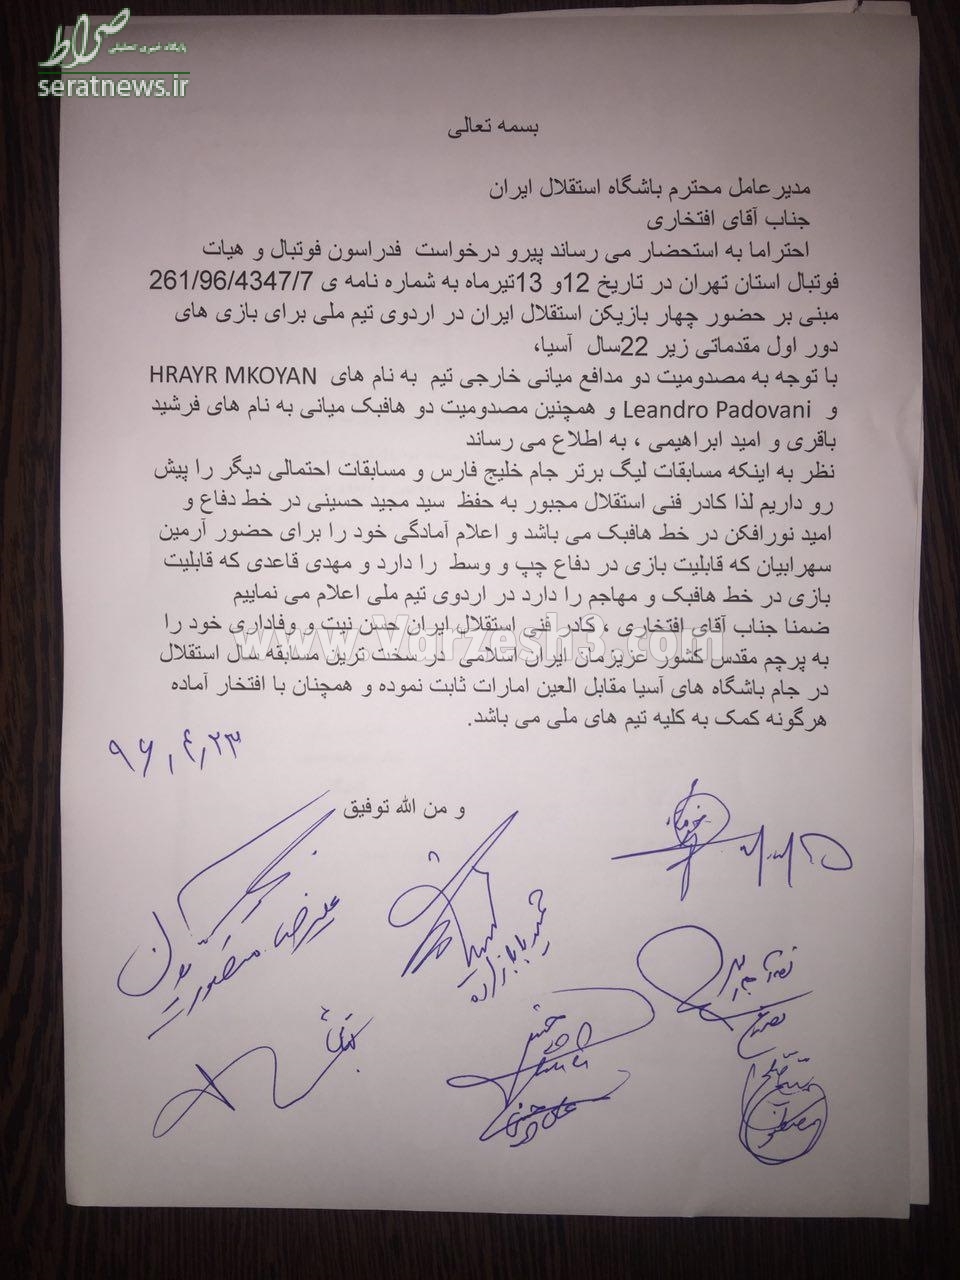 صراط
پایگاه خبری تحلیلی
seratnews.ir
بسمه تعالی
مدیرعامل محترم باشگاه استقلال ایران
جناب آقای افتخاری
احتراما به استحضار می رساند پیرو درخواست فدراسون فوتبال و هیات
فوتبال استان تهران در تاریخ 12و 13تیرماه به شماره نامه ی 261/96/4347/7
مبنی بر حضور چهار بازیکن استقلال ایران در اردوی تیم ملی برای بازی های
دور اول مقدماتی زیر 22سال آسیا،
با توجه به مصدومیت دو مدافع میانی خارجی تیم به نام های HRAYR MKOYAN
و Leandro Padovani و همچنین مصدومیت دو هافبک میانی به نام های فرشید
باقری و امید ابراهیمی ، به اطلاع می رساند
نظر به اینکه مسابقات لیگ برتر جام خلیج فارس و مسابقات احتمالی دیگر را پیش
رو داریم لذا کادر فنی استقلال مجبور به حفظ سید مجید حسینی در خط دفاع و
امید نورافکن در خط هافبک می باشد و اعلام آمادگی خود را برای حضور آرمین
سهرابیان که قابلیت بازی در دفاع چپ و وسط را دارد و مهدی قاعدی که قابلیت
بازی در خط هافبک و مهاجم را دارد در اردوی تیم ملی اعلام می نماییم
ضمنا جناب آقای افتخاری ، کادر فنی استقلال ایران حسن نیت و وفاداری خود را
www.Varzesh3.com
به پرچم مقدس کشور عزیزمان ایران اسلامی در سخت ترین مسابقه سال استقلال
در جام باشگاه های آسیا مقابل العین امارات ثابت نموده و همچنان با افتخار آماده
هرگونه کمک به کلیه تیم های ملی می باشد.
۹۶,۴,۲۳
و من الله توفیق
علیرضا منصوریان
حمید بابازاده